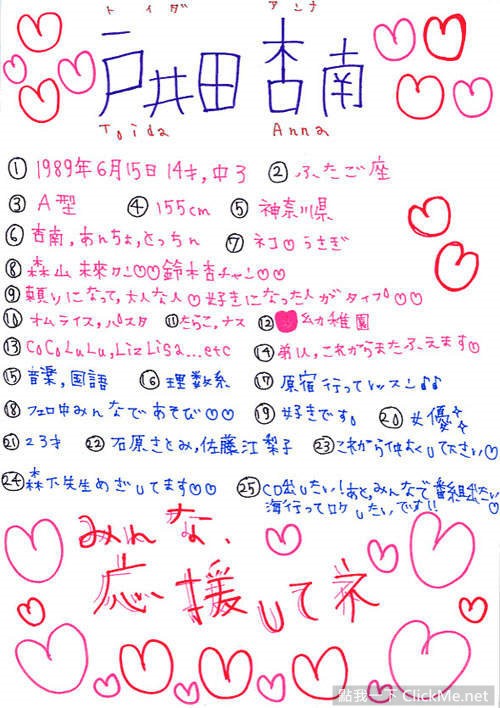 トイダ アンナ
戸井田 杏南
Toida Anna
① 1989年6月15日 14才,中3 ② ふたご座
③ A型 ④ 155cm ⑤ 神奈川県
⑥ 杏南,あんちょ,とっちん ⑦ ネコ♡うさぎ
⑧ 森山 未來クン♡♡鈴木杏チャン♡♡
⑨ 頼りになって,大人な人♡好きになった人がタイプ♡♡
⑩ オムライス,パスタ ⑪たらこ,ナス ⑫ ♥幼稚園
⑬ CoCoLuLu,LizLiSa...etc ⑭ 弟1人,これからまたふえます♡
⑮ 音楽,国語 ⑯ 理数系 ⑰ 原宿行ってレッスン♪♪
⑱ フェロ中みんなであそび♡♡ ⑲ 好きです。 ⑳ 女優☆☆
㉑ 23才 ㉒ 石原さとみ,佐藤江梨子 ㉓これから仲よくして下さい♡
㉔ 森下先生めざしてます♡♡ ㉕ CD出したい!あと,みんなで番組出たい
海行ってロケしたいです!! ♡
みんな、
応援してネ
點我一下 ClickMe.net